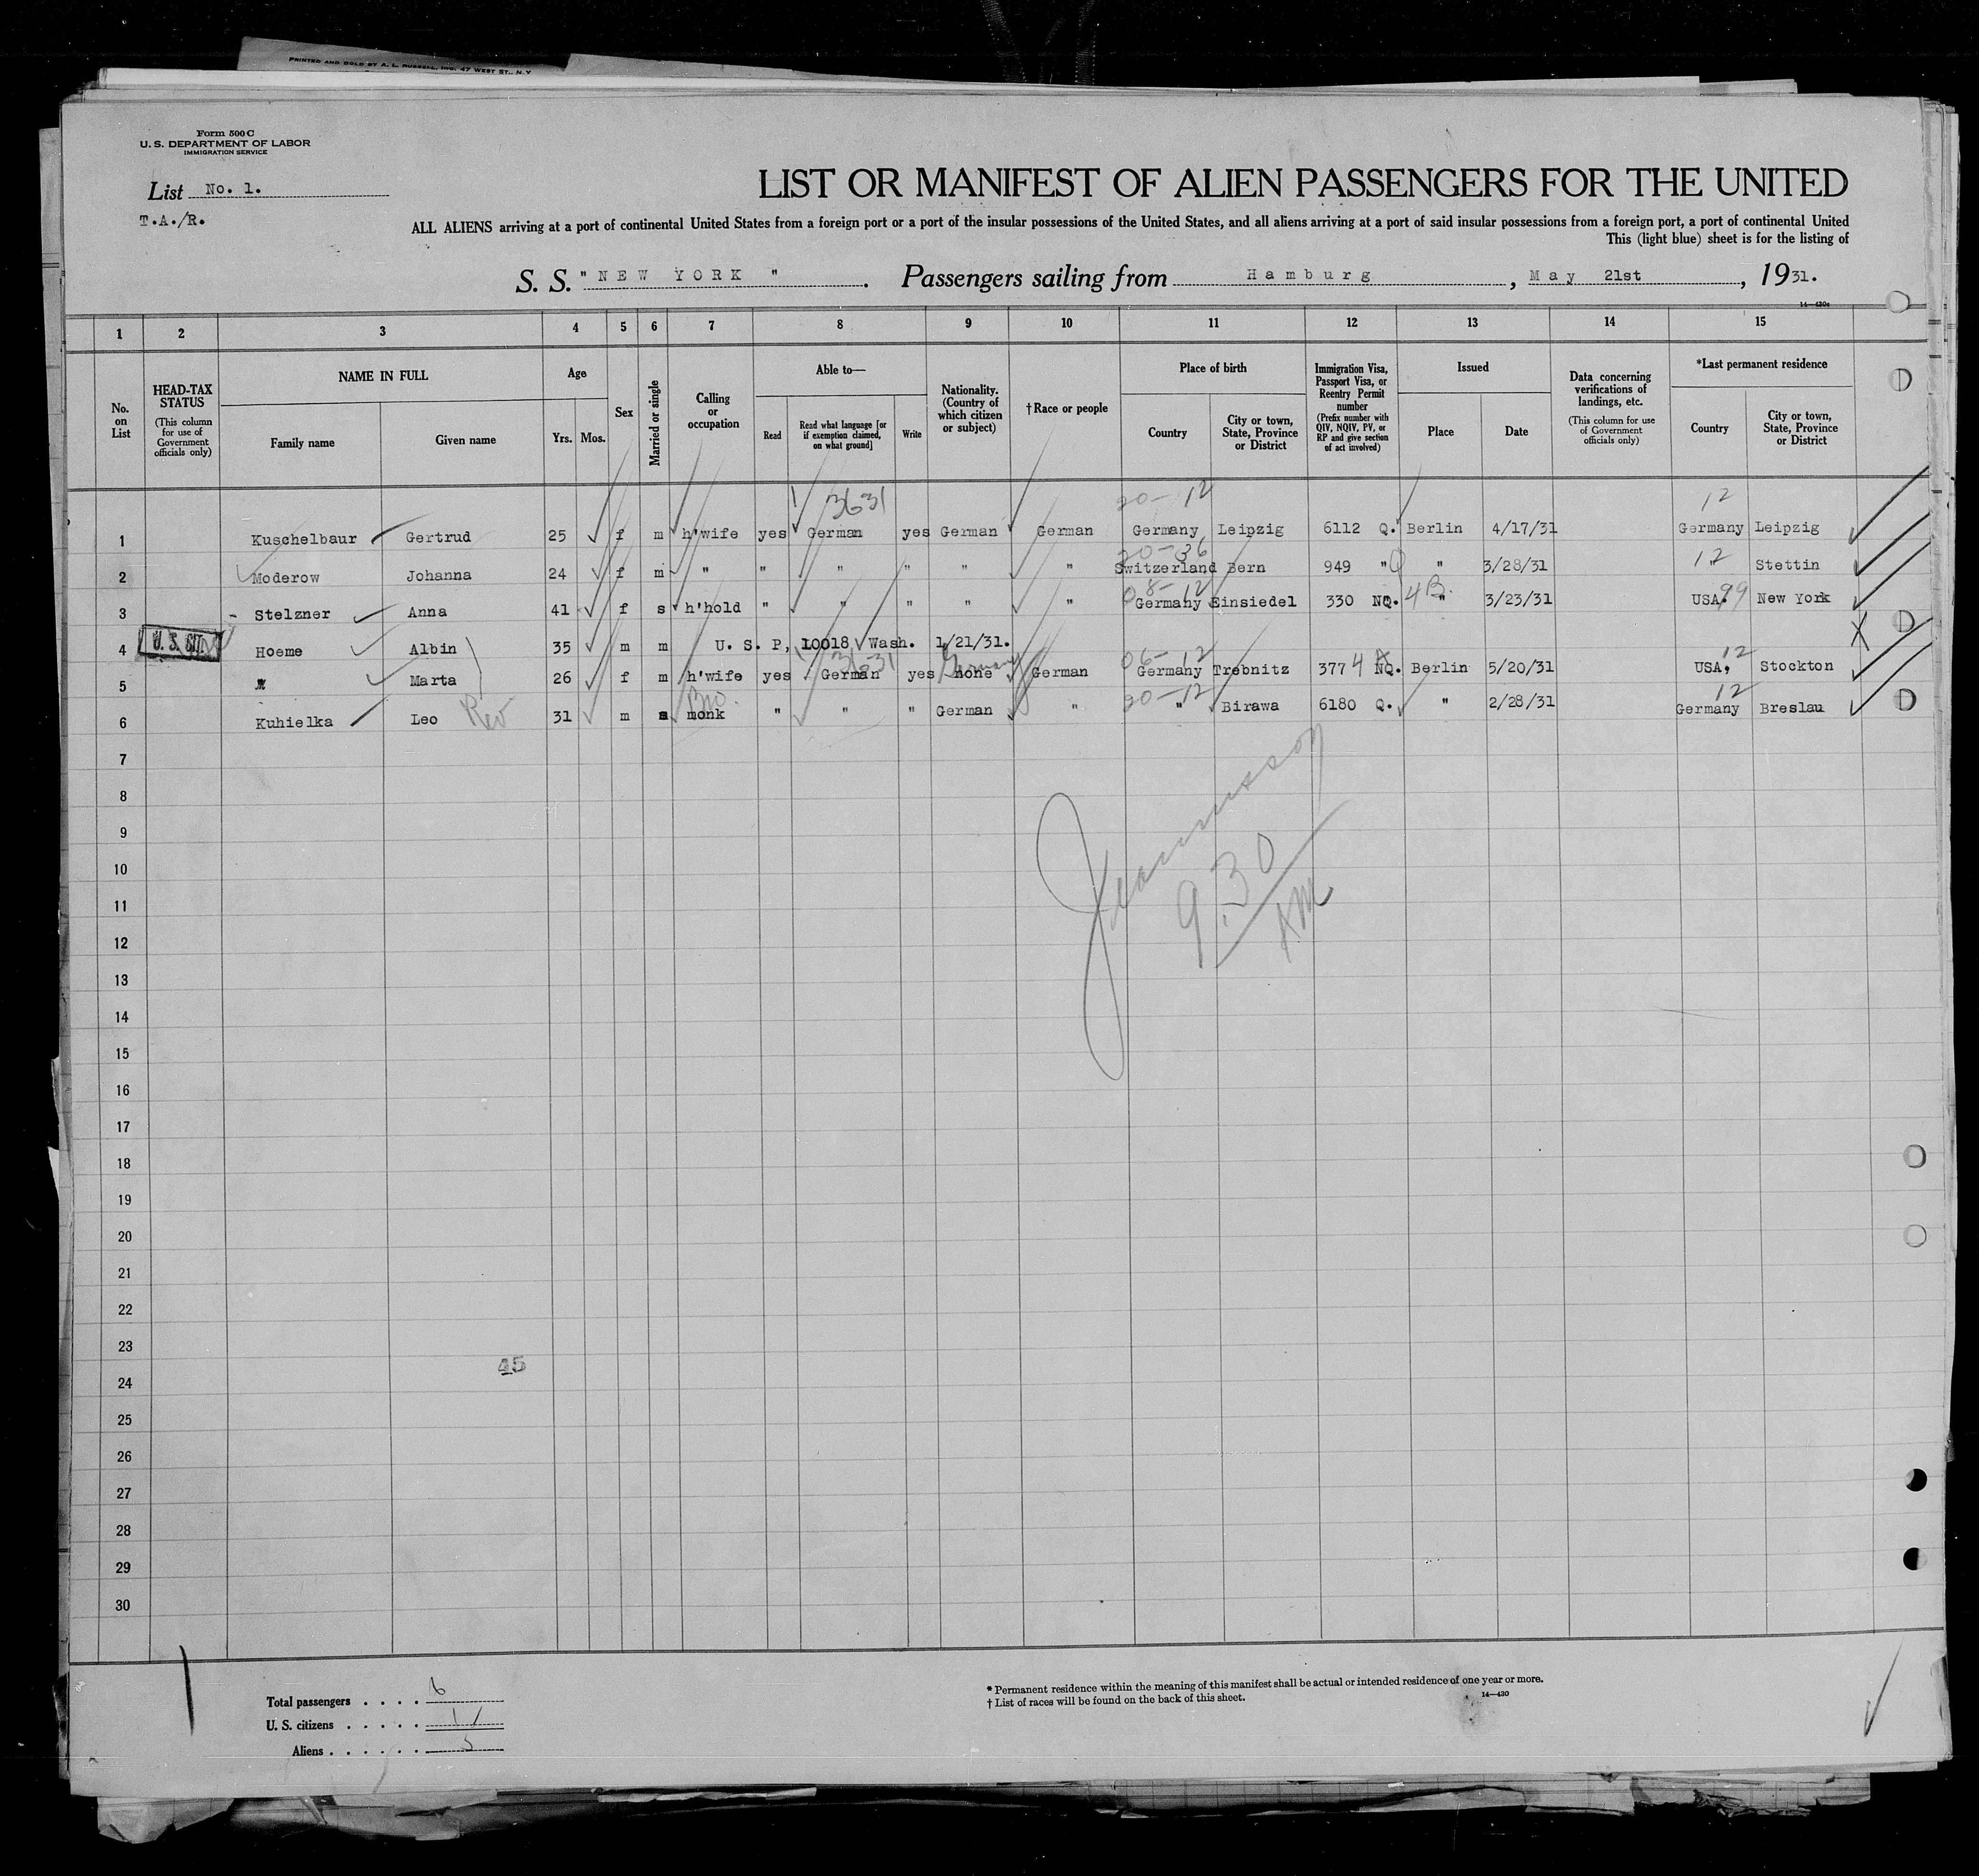 PRINTED AND SOLD BY A. L. RUSSELL, INC. 47 WEST ST., N.Y
Form 500 C
U. S. DEPARTMENT OF LABOR
IMMIGRATION SERVICE
List No. 1.
T.A./R.
LIST OR MANIFEST OF ALIEN PASSENGERS FOR THE UNITED
ALL ALIENS arriving at a port of continental United States from a foreign port or a port of the insular possessions of the United States, and all aliens arriving at a port of said insular possessions from a foreign port, a port of continental United
This (light blue) sheet is for the listing of
S. S. " NEW YORK " . Passengers sailing from Hamburg , May 21st , 1931.
14—430c
1 2 3 4 5 6 7 8 9 10 11 12 13 14 15
No. on List
HEAD-TAX STATUS
(This column for use of Government officials only)
NAME IN FULL
Family name Given name
Age
Yrs. Mos.
Sex
Married or single
Calling or occupation
Able to—
Read
Read what language [or if exemption claimed, on what ground]
Write
Nationality. (Country of which citizen or subject)
† Race or people
Place of birth
Country
City or town, State, Province or District
Immigration Visa, Passport Visa, or Reentry Permit number
(Prefix number with QIV, NQIV, PV, or RP and give section of act involved)
Issued
Place Date
Data concerning verifications of landings, etc.
(This column for use of Government officials only)
*Last permanent residence
Country
City or town, State, Province or District
3631 20-12 12
1 Kuschelbaur Gertrud 25 f m h'wife yes German yes German German Germany Leipzig 6112 Q. Berlin 4/17/31 Germany Leipzig
20-36
2 Moderow Johanna 24 f m " " " " " " Switzerland Bern 949 " Q " 3/28/31 " 12 Stettin
08-12
3 - Stelzner Anna 41 f s h'hold " " " " " Germany Einsiedel 330 NQ. 4B. " 3/23/31 USA. 99 New York
4 U. S. CIT. Hoeme Albin 35 m m U. S. P, 10018 Wash. 1/21/31. X
3631 Germany 06-12 12
5 Marta 26 f m h'wife yes German yes none German Germany Trebnitz 3774 NQ. Berlin 5/20/31 USA, Stockton
Bro. 20-12 12
6 Kuhielka Leo Rev 31 m s monk " " " German " " Birawa 6180 Q. " 2/28/31 Germany Breslau
7
8
9
10
11
12
13
14
15
16
17
18
19
20
21
22
23
24
25
26
27
28
29
30
9.30
AM
45
Total passengers . . . . 6
U. S. citizens . . . . . 1
Aliens . . . . . . . 5
* Permanent residence within the meaning of this manifest shall be actual or intended residence of one year or more.
† List of races will be found on the back of this sheet.
14—430